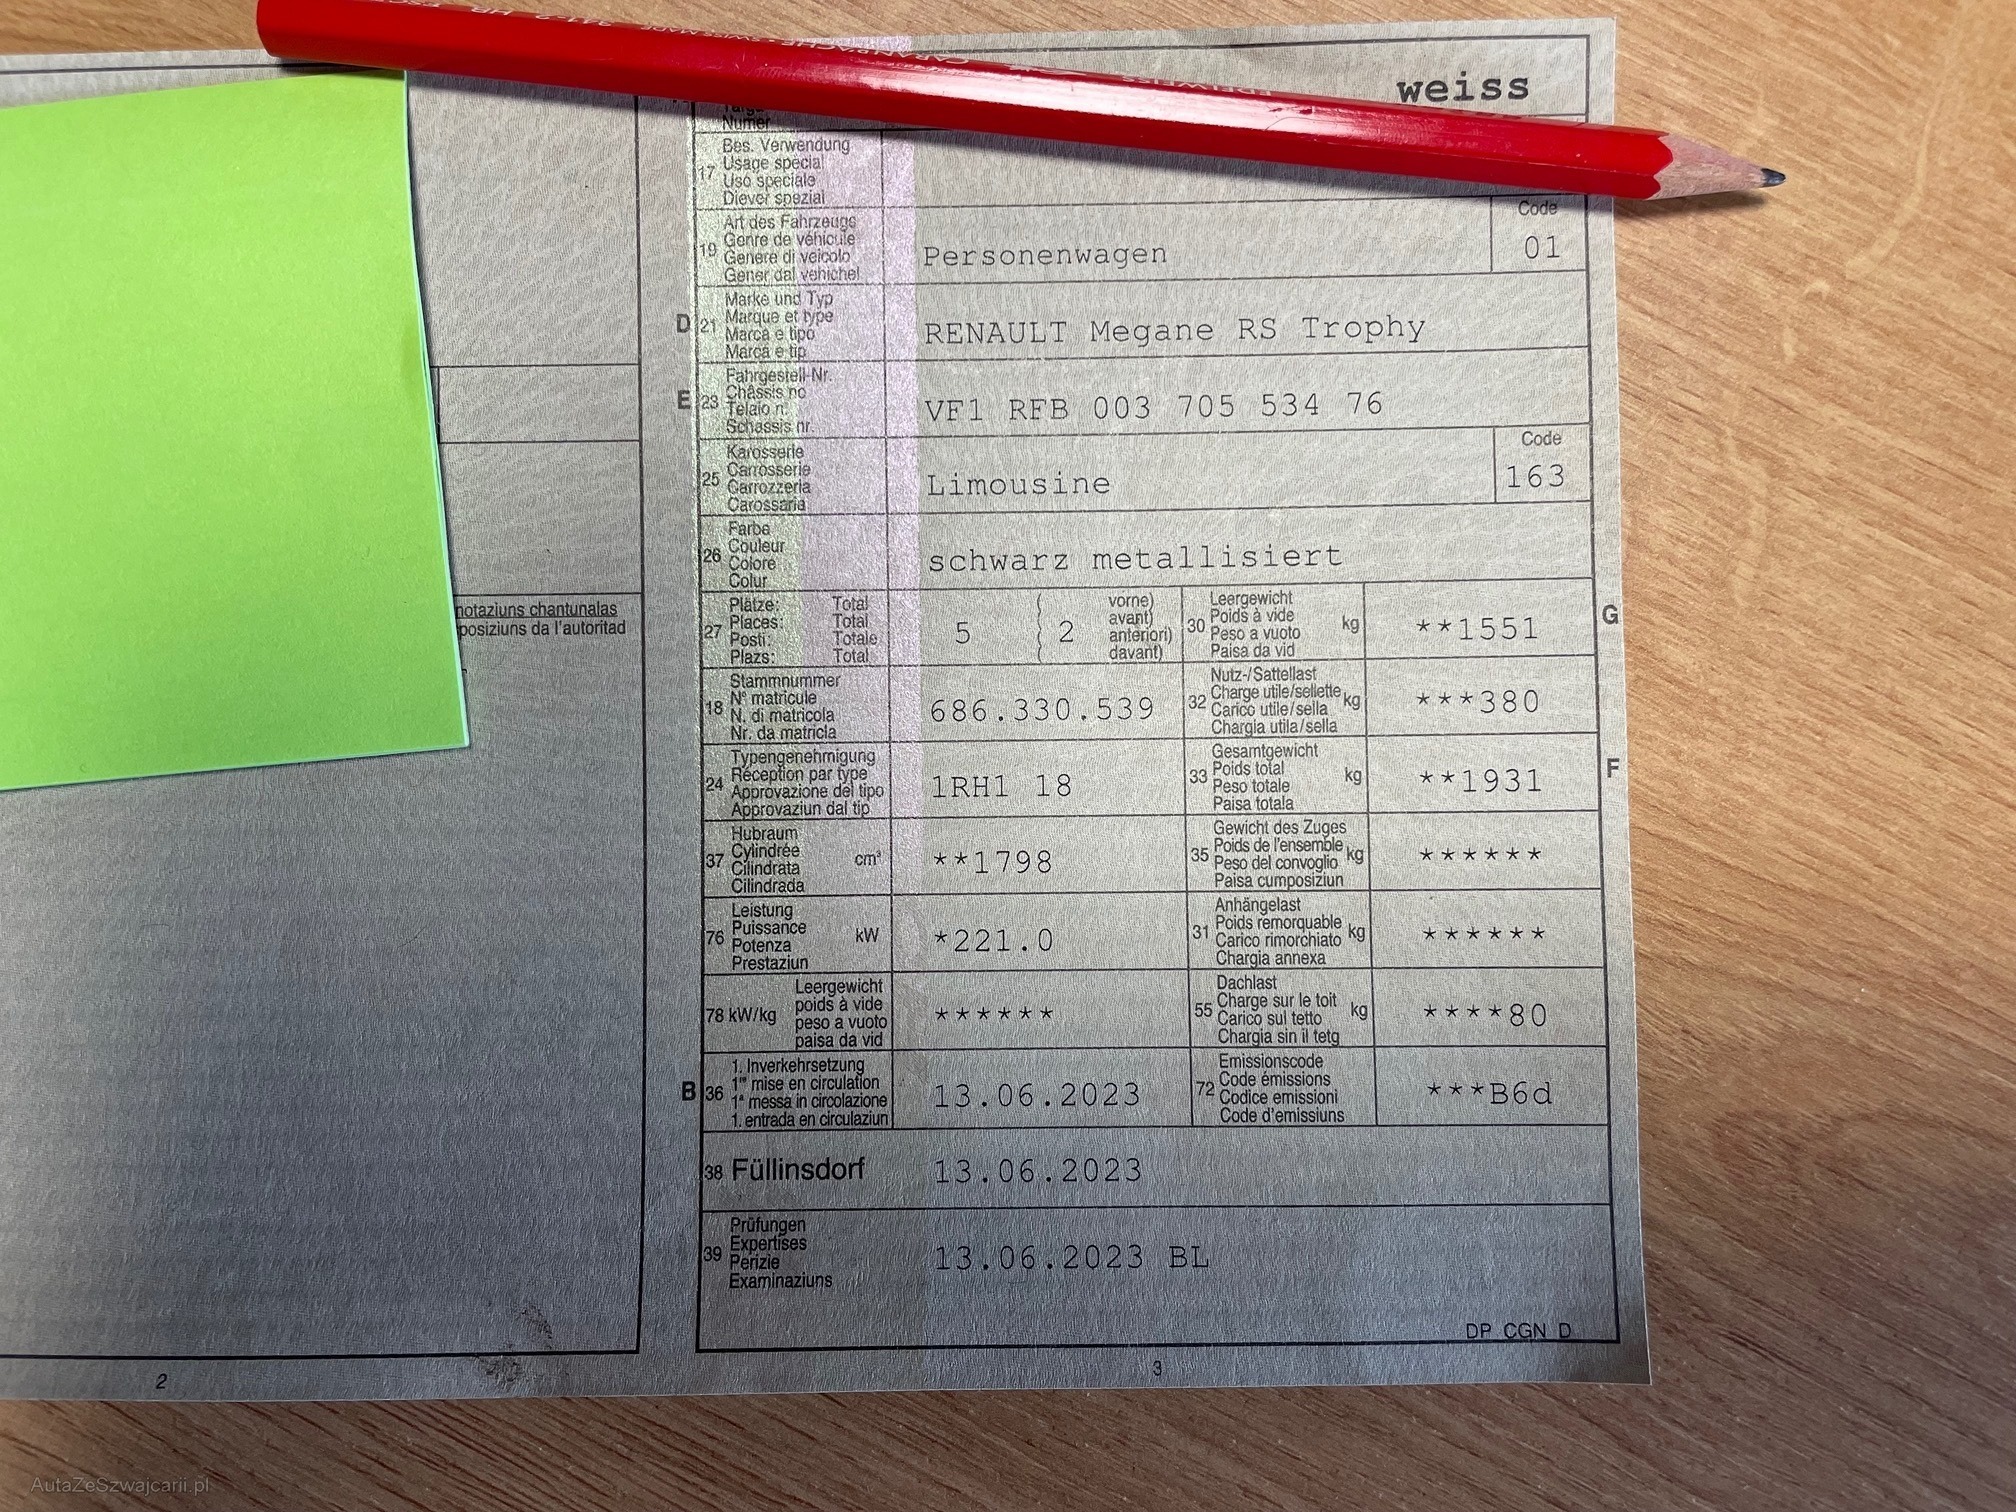 weiss
Targa
Numer
17 Bes. Verwendung
Usage spécial
Uso speciale
Diever spezial
19 Art des Fahrzeugs
Genre de véhicule
Genere di veicolo
Gener dal vehichel
Personenwagen
Code
01
D 21 Marke und Typ
Marque et type
Marca e tipo
Marca e tip
RENAULT Megane RS Trophy
E 23 Fahrgestell-Nr.
Châssis no
Telaio n.
Schassis nr.
VF1 RFB 003 705 534 76
25 Karosserie
Carrosserie
Carrozzeria
Carossaria
Limousine
Code
163
26 Farbe
Couleur
Colore
Colur
schwarz metallisiert
27 Plätze: Total
Places: Total
Posti: Totale
Plazs: Total
5 ( 2
vorne)
avant)
anteriori)
davant)
30 Leergewicht
Poids à vide
Peso a vuoto
Paisa da vid
kg
**1551
G
18 Stammnummer
N° matricule
N. di matricola
Nr. da matricla
686.330.539
32 Nutz-/Sattellast
Charge utile/sellette
Carico utile/sella
Chargia utila/sella
kg
***380
24 Typengenehmigung
Réception par type
Approvazione del tipo
Approvaziun dal tip
1RH1 18
33 Gesamtgewicht
Poids total
Peso totale
Paisa totala
kg
**1931
F
37 Hubraum
Cylindrée
Cilindrata
Cilindrada
cm³
**1798
35 Gewicht des Zuges
Poids de l'ensemble
Peso del convoglio
Paisa cumposiziun
kg
******
76 Leistung
Puissance
Potenza
Prestaziun
kW
*221.0
31 Anhängelast
Poids remorquable
Carico rimorchiato
Chargia annexa
kg
******
78 kW/kg
Leergewicht
poids à vide
peso a vuoto
paisa da vid
******
55 Dachlast
Charge sur le toit
Carico sul tetto
Chargia sin il tetg
kg
****80
B 36 1. Inverkehrsetzung
1re mise en circulation
1a messa in circolazione
1. entrada en circulaziun
13.06.2023
72 Emissionscode
Code émissions
Codice emissioni
Code d'emissiuns
***B6d
38 Füllinsdorf
13.06.2023
39 Prüfungen
Expertises
Perizie
Examinaziuns
13.06.2023 BL
DP CGN D
3
notaziuns chantunalas
posiziuns da l'autoritad
2
AutaZeSzwajcarii.pl